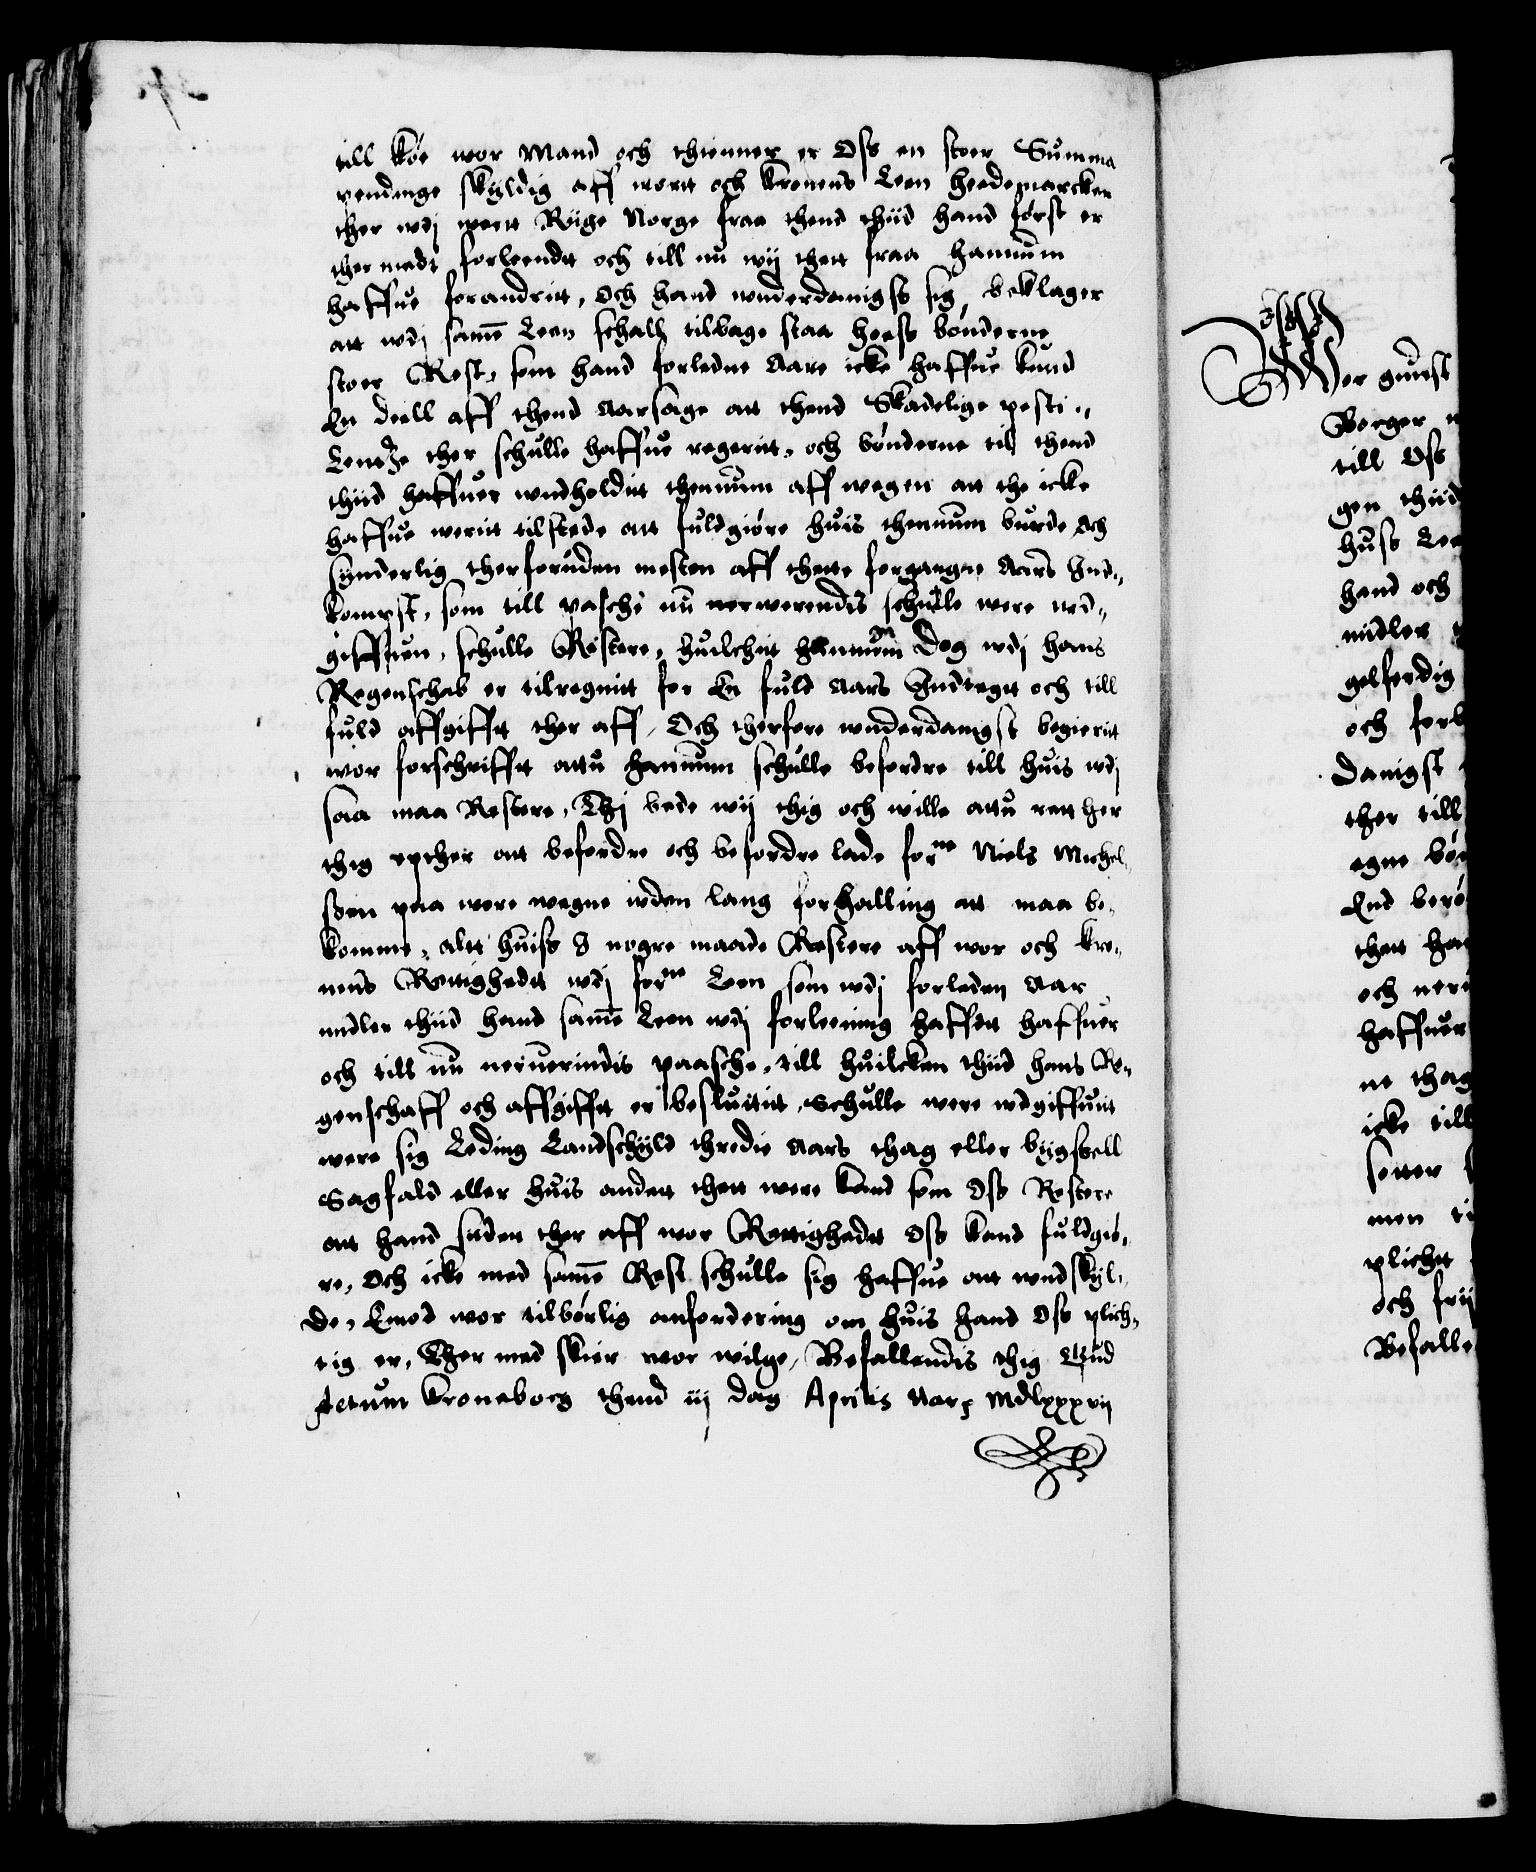 till Køe wor Mand och thienner er Oss en stoer Summa
pendinge skyldig aff wort och Kronens Leen Heedemarcken
ther wdj wort Riige Norge fraa thend thiid hand først er
ther medt forleendtt och till nu wij thett fraa hannum
haffue forandritt, Och hand wnderdanigst sig beklager
att wdj same Leen schall tilbage staa hoess bønderne
stoer Rest, som hand forledne Aare icke haffue kund
En deell aff thend Aarsage att thend Skadelige pesti„
Lentze ther schulle haffue regeritt, och bønderne til thend
thiid haffuer wndholditt thennum aff wegen att the icke
haffue weritt tilstede att fuldgiøre huis thennum burde, och
synderlig therforuden mesten aff thette forgangne Aars Ind„
kompst, som till paasche nu nerwerendis schulle were wd„
giffuen, schulle Restere, huilchit hannum Dog wdj hans
Regenschab er tilregnitt for En fuld Aars Indtegtt och till
fuld affgifftt ther aff, Och therfore wnderdanigst begieritt
wor forschrifftt attu hannum schulle befordre till huis wdj
saa maa Restere, Thj bede wij thig och wille attu rett her
thig epther att befordre och befordre lade forne Niels Michel„
ssen paa wore wegne wden lang forhalling att maa be„
komme, altt huiss I nogre maade Restere aff wor och Kro„
nens Rettighedtt wdj forne Leen som wdj forleden Aar
midler thiid hand same Leen wdj forleening hafftt haffuer
och till nu neruerindis paasche, till huilcken thiid hans Re„
genschaff och affgifftt er besluttitt, schulle were wdgiffuit
were sig Leding Landschyld thredie Aars thag eller bygssell
Sagfald eller huis andett thett were kand som Oss Restere
att hand siiden ther aff wor Rettighedtt Oss kand fuldgiø„
re, Och icke med same Rest schulle sig haffue att wndskyl„
de, Emod wor tilbørlig anfordering om huis hand Oss plich„
tig er, Ther med skier wor wilge, Befallendis thig Gud
Actum Kroneborg thend iij dag Aprilis Aar MDLxxxvij
Wor gunst
Borger
till Oss
gen thiid
huss Lee
hand och
midler
gelferdig
och forb
danigst
ther till
egne bøn
End berø
thett ha
och ner
haffuer
ne thag
icke till
setter
men ti
plichtt
och frij
Befalle